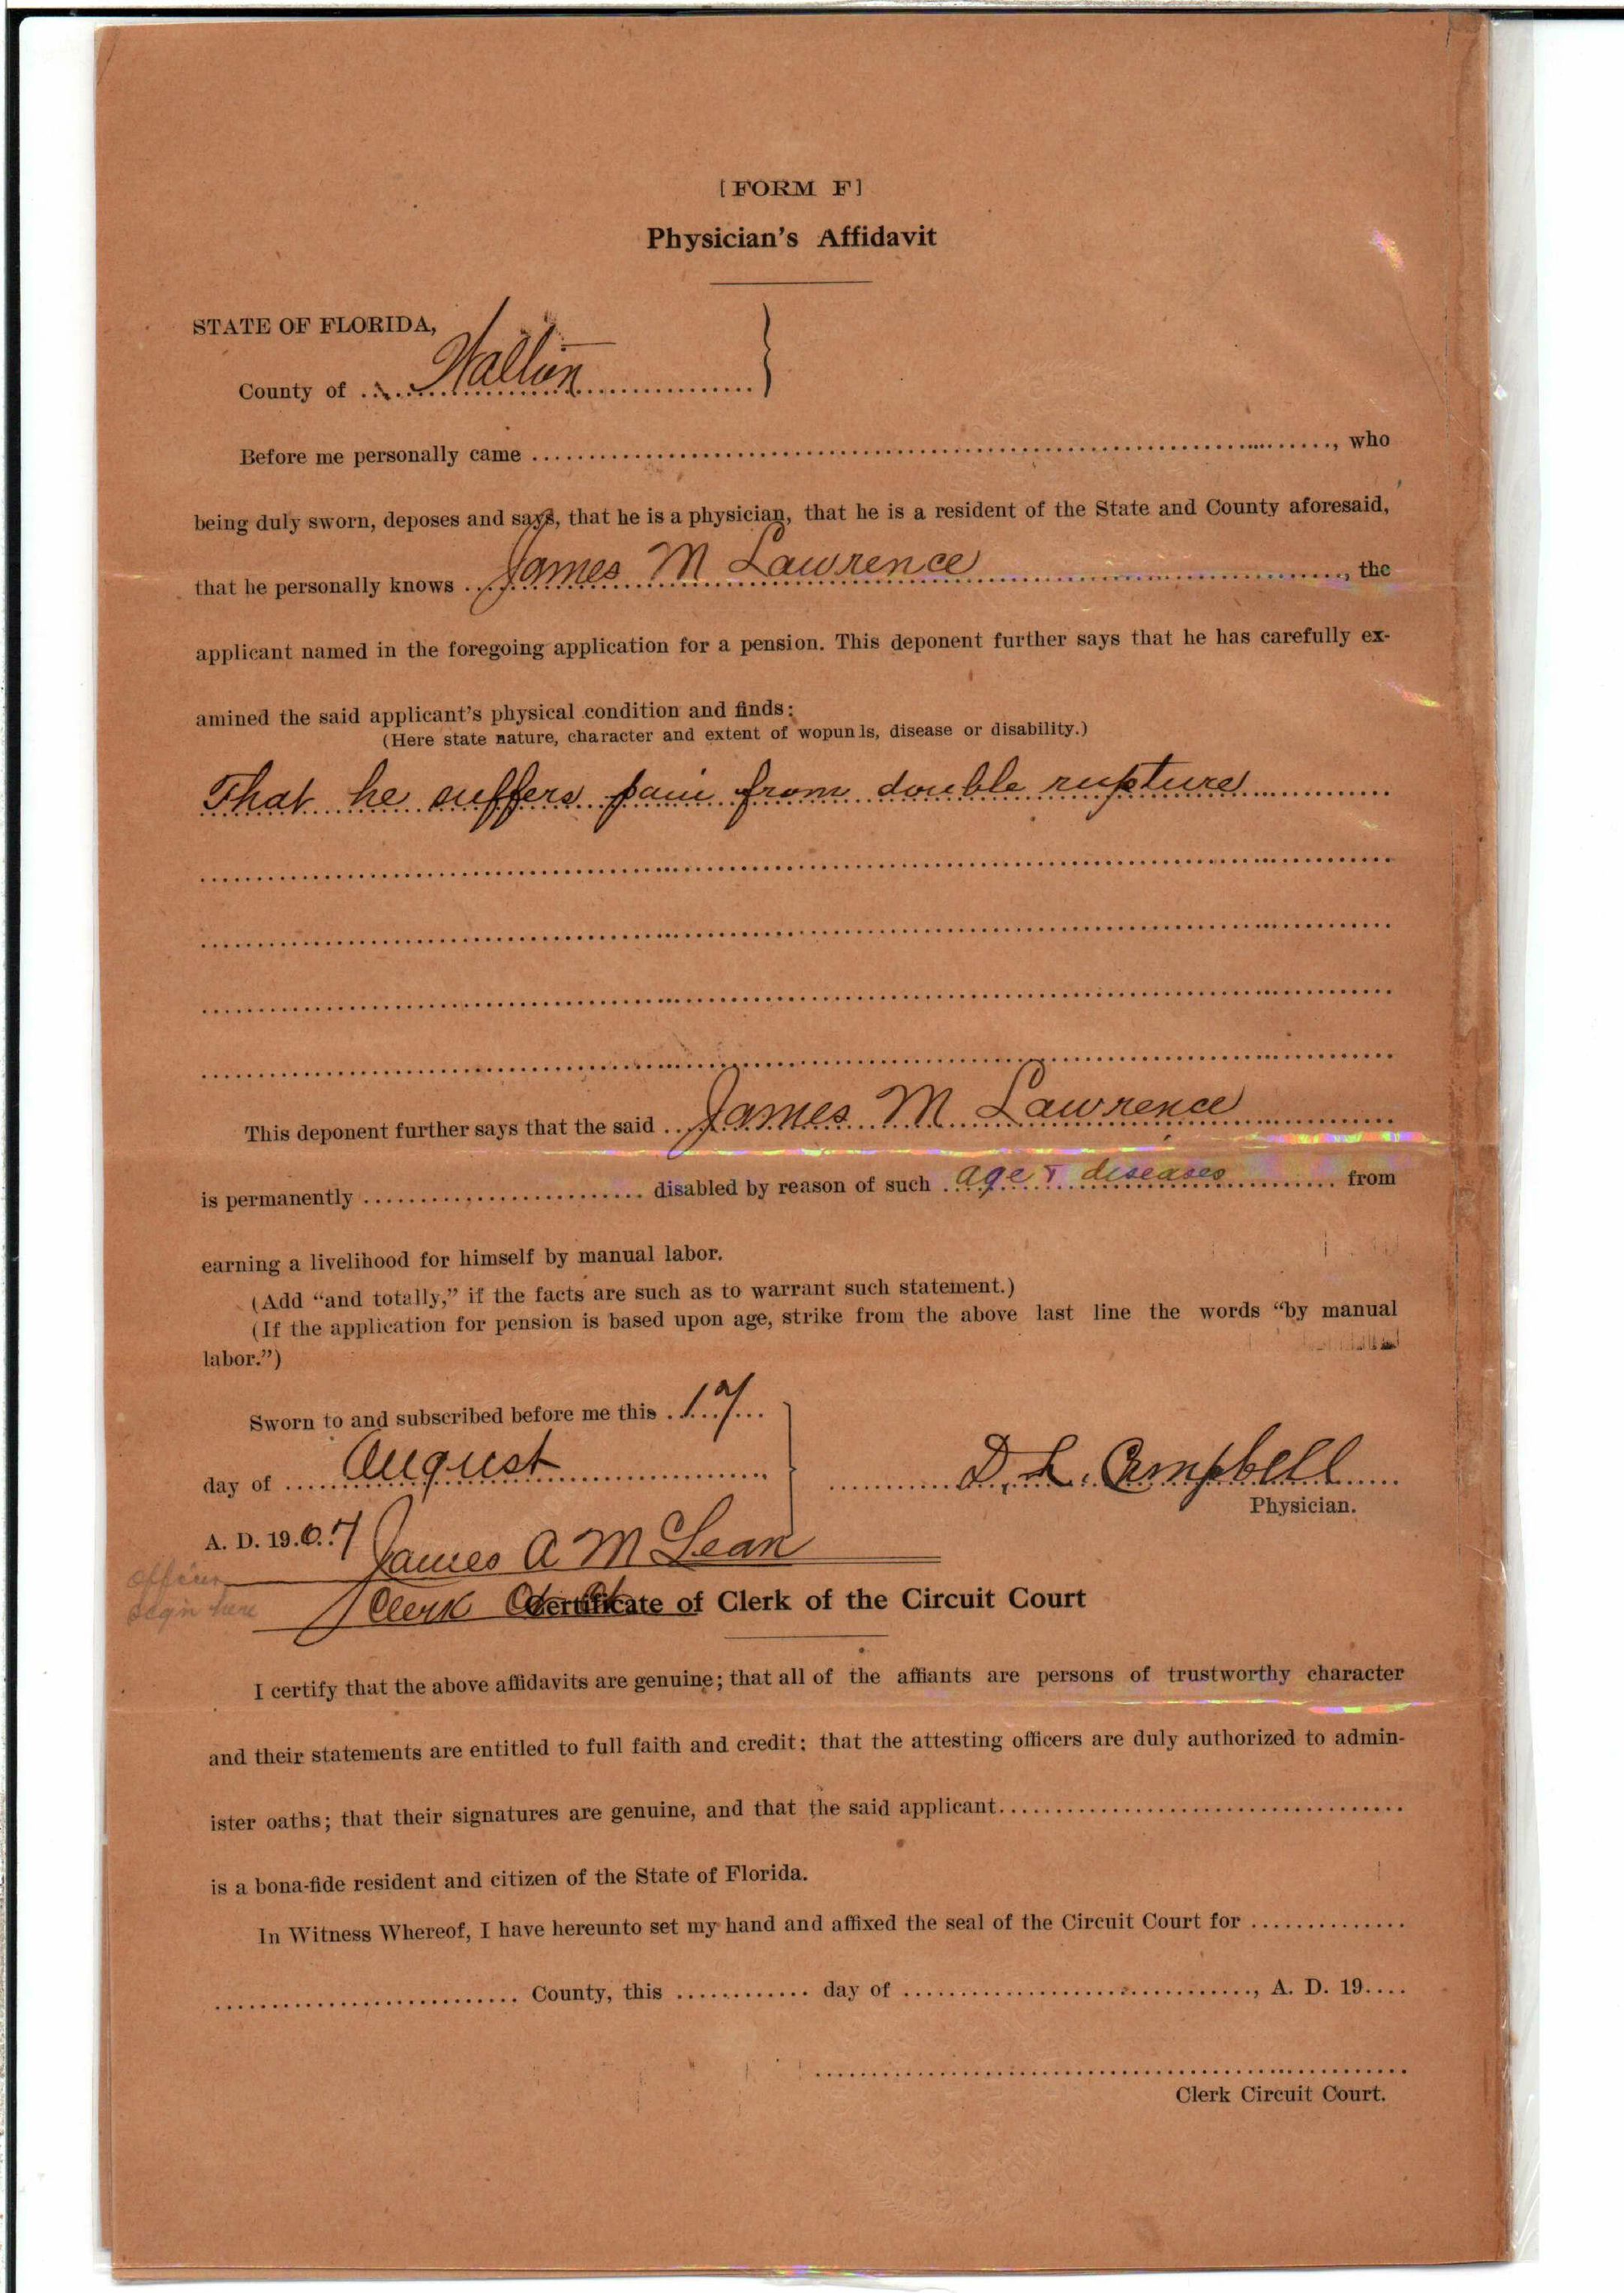 [FORM F]
Physician's Affidavit
STATE OF FLORIDA,
County of Walton
Before me personally came ........, who
being duly sworn, deposes and says, that he is a physician, that he is a resident of the State and County aforesaid,
that he personally knows James M Lawrence, the
applicant named in the foregoing application for a pension. This deponent further says that he has carefully ex-
amined the said applicant's physical condition and finds:
(Here state nature, character and extent of wopunls, disease or disability.)
That he suffers pain from double rupture
This deponent further says that the said James M Lawrence
is permanently ........ disabled by reason of such age & diseases from
earning a livelihood for himself by manual labor.
(Add "and totally," if the facts are such as to warrant such statement.)
(If the application for pension is based upon age, strike from the above last line the words "by manual
labor.")
Sworn to and subscribed before me this 17
day of August
D. L. Campbell
Physician.
A. D. 1907
James A McLean
Officer
sign here
Clerk Ct Ct
Certificate of Clerk of the Circuit Court
I certify that the above affidavits are genuine; that all of the affiants are persons of trustworthy character
and their statements are entitled to full faith and credit; that the attesting officers are duly authorized to admin-
ister oaths; that their signatures are genuine, and that the said applicant........
is a bona-fide resident and citizen of the State of Florida.
In Witness Whereof, I have hereunto set my hand and affixed the seal of the Circuit Court for ........
........ County, this ........ day of ........, A. D. 19....
Clerk Circuit Court.